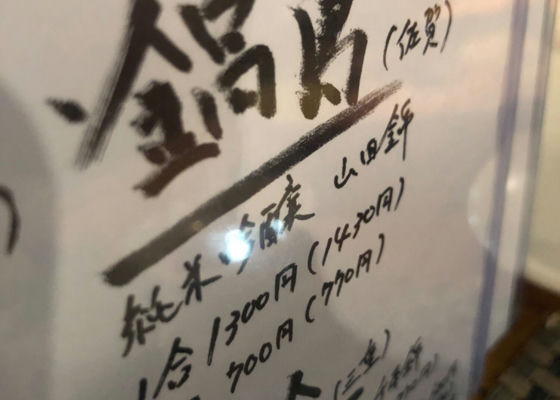 鍋島(佐賀)
純米吟醸 山田錦
1合 1300円(1430円)
700円(770円)
(三重)